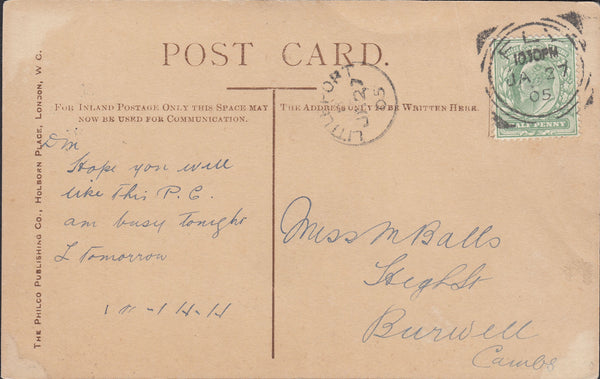 POST CARD.
FOR INLAND POSTAGE ONLY THIS SPACE MAY
NOW BE USED FOR COMMUNICATION.
THE ADDRESS ONLY TO BE WRITTEN HERE.
THE PHILCO PUBLISHING CO., HOLBORN PLACE, LONDON, W. C.
LITTLEPORT
JA 27
05
ELY
1030PM
JA 27
05
HALFPENNY
Hope you will
like This P.C.
am busy tonight
& Tomorrow
Miss M Balls
High St
Burwell
Cambs